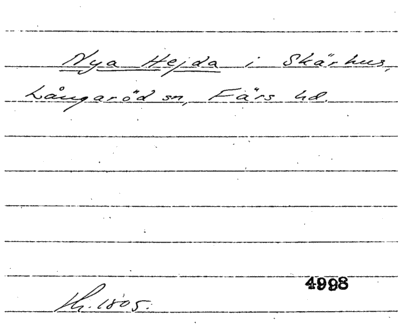 Nya Hejda i Skärhus,
Långaröd sn, Färs hd.
4998
th. 1805.